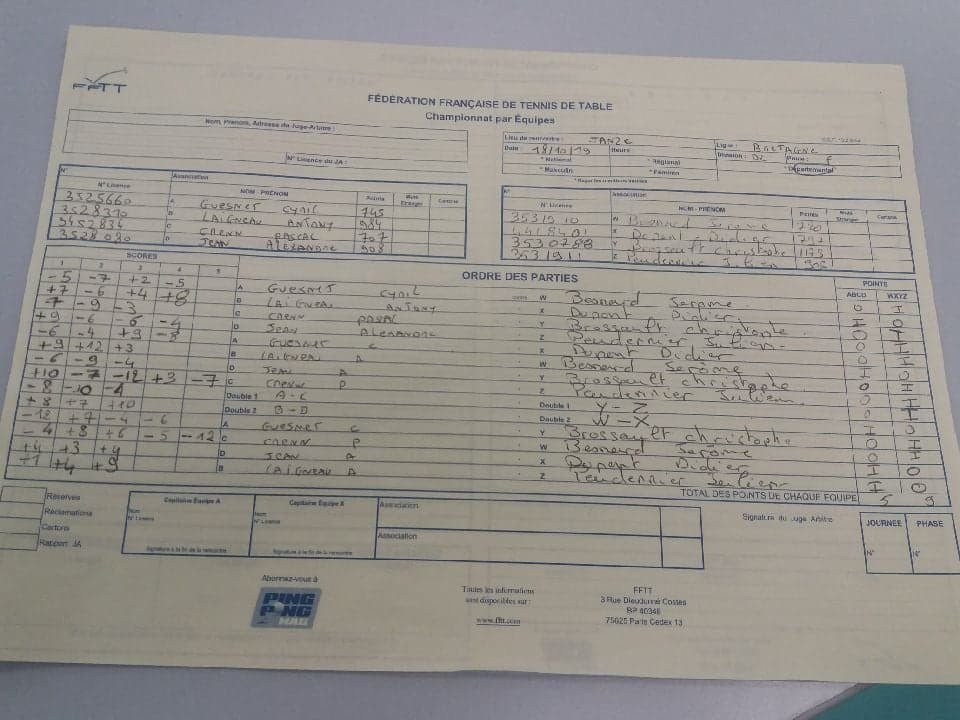 FFTT
FÉDÉRATION FRANÇAISE DE TENNIS DE TABLE
Championnat par Équipes
Nom, Prénom, Adresse du Juge-Arbitre :
N° Licence du JA :
Lieu de rencontre : JANZE
Date : 18/10/19 Heure
* National * Régional
* Masculin * Féminin
Ligue : BRETAGNE
Division : D2 Poule : F
* Départemental
N° Association
N° Licence NOM - PRÉNOM Points Muté Etranger Cartons
3525660 A GUESNET CYRIL 745
3528370 B LAIGNEAU ANTONY 984
9452834 C CRENN PASCAL 707
3528090 D JEAN ALEXANDRE 908
N° Association
N° Licence NOM - PRÉNOM Points Muté Etranger Cartons
3531910 W Besnard Jerome
X Dupont Didier
3530788 Y Brossault Christophe 1175
3531911 Z Pendennier Julien
SCORES
1 2 3 4 5
ORDRE DES PARTIES
POINTS
ABCD WXYZ
-5 -7 +2 -5 A GUESNET CYRIL W Besnard Jerome O I
+7 -6 +4 +8 B LAIGNEAU ANTONY X Dupont Didier I O
-9 -3 C CRENN PASCAL Y Brossault christophe O I
+9 -6 -6 -4 D JEAN ALEXANDRE Z Pendennier Julien O I
-6 -4 +9 -8 A GUESNET C X Dupont Didier O I
+9 +12 +3 B LAIGNEAU A W Besnard Jerome I O
-6 -9 -4 D JEAN A Y Brossault christophe O I
+10 -7 -12 +3 -7 C CRENN P Z Pendennier Julien O I
-8 -10 -4 Double 1 A-C Double 1 Y-Z O I
+8 +7 +10 Double 2 B-D Double 2 W-X I O
-12 +7 -4 -6 A GUESNET C Y Brossault christophe O I
-4 +8 +6 -5 -12 C CRENN P W Besnard Jerome O I
+4 +3 +4 D JEAN A X Dupont Didier I O
+1 +4 +9 B LAIGNEAU A Z Pendennier Julien I O
TOTAL DES POINTS DE CHAQUE EQUIPE 5 9
Réserves
Réclamations
Cartons
Rapport JA
Capitaine Équipe A
Nom
N° Licence
Signature à la fin de la rencontre
Capitaine Équipe X
Nom
N° Licence
Signature à la fin de la rencontre
Association
Association
Signature du Juge Arbitre
JOURNEE PHASE
N° N°
Abonnez-vous à
PING PONG MAG
Toutes les informations
sont disponibles sur :
www.fftt.com
FFTT
3 Rue Dieudonné Costes
BP 40348
75625 Paris Cedex 13